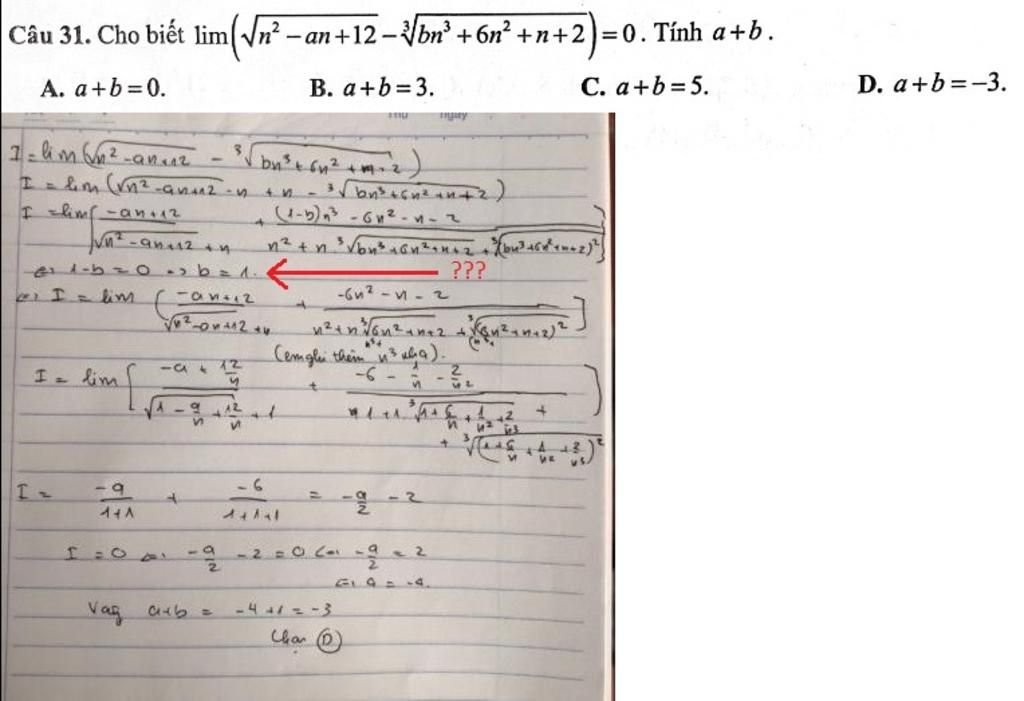 Câu 31. Cho biết lim(√(n² − an + 12) − ∛(bn³ + 6n² + n + 2)) = 0. Tính a + b.
A. a + b = 0. B. a + b = 3. C. a + b = 5. D. a + b = −3.
I = lim(√(n² − an + 12) − ∛(bn³ + 6n² + n + 2))
I = lim(√(n² − an + 12) − n + n − ∛(bn³ + 6n² + n + 2))
I = lim[(−an + 12)/(√(n² − an + 12) + n) + ((1−b)n³ − 6n² − n − 2)/(n² + n∛(bn³ + 6n² + n + 2) + ∛((bn³ + 6n² + n + 2)²))]
⇔ 1 − b = 0 ⇔ b = 1. ???
⇔ I = lim [(−an + 12)/(√(n² − an + 12) + n) + (−6n² − n − 2)/(n² + n∛(n³ + 6n² + n + 2) + ∛((n³ + 6n² + n + 2)²))]
(em ghi thêm n³ nha).
I = lim [(−a + 12/n)/(√(1 − a/n + 12/n) + 1) + (−6 − 1/n − 2/n²)/(1 + 1.∛(1 + 6/n + 1/n² + 2/n³) + ∛((1 + 6/n + 1/n² + 2/n³)²))]
I = −a/(1+1) + −6/(1+1+1) = −a/2 − 2
I = 0 ⇔ −a/2 − 2 = 0 ⇔ −a/2 = 2
⇔ a = −4.
Vậy a + b = −4 + 1 = −3
Chọn D